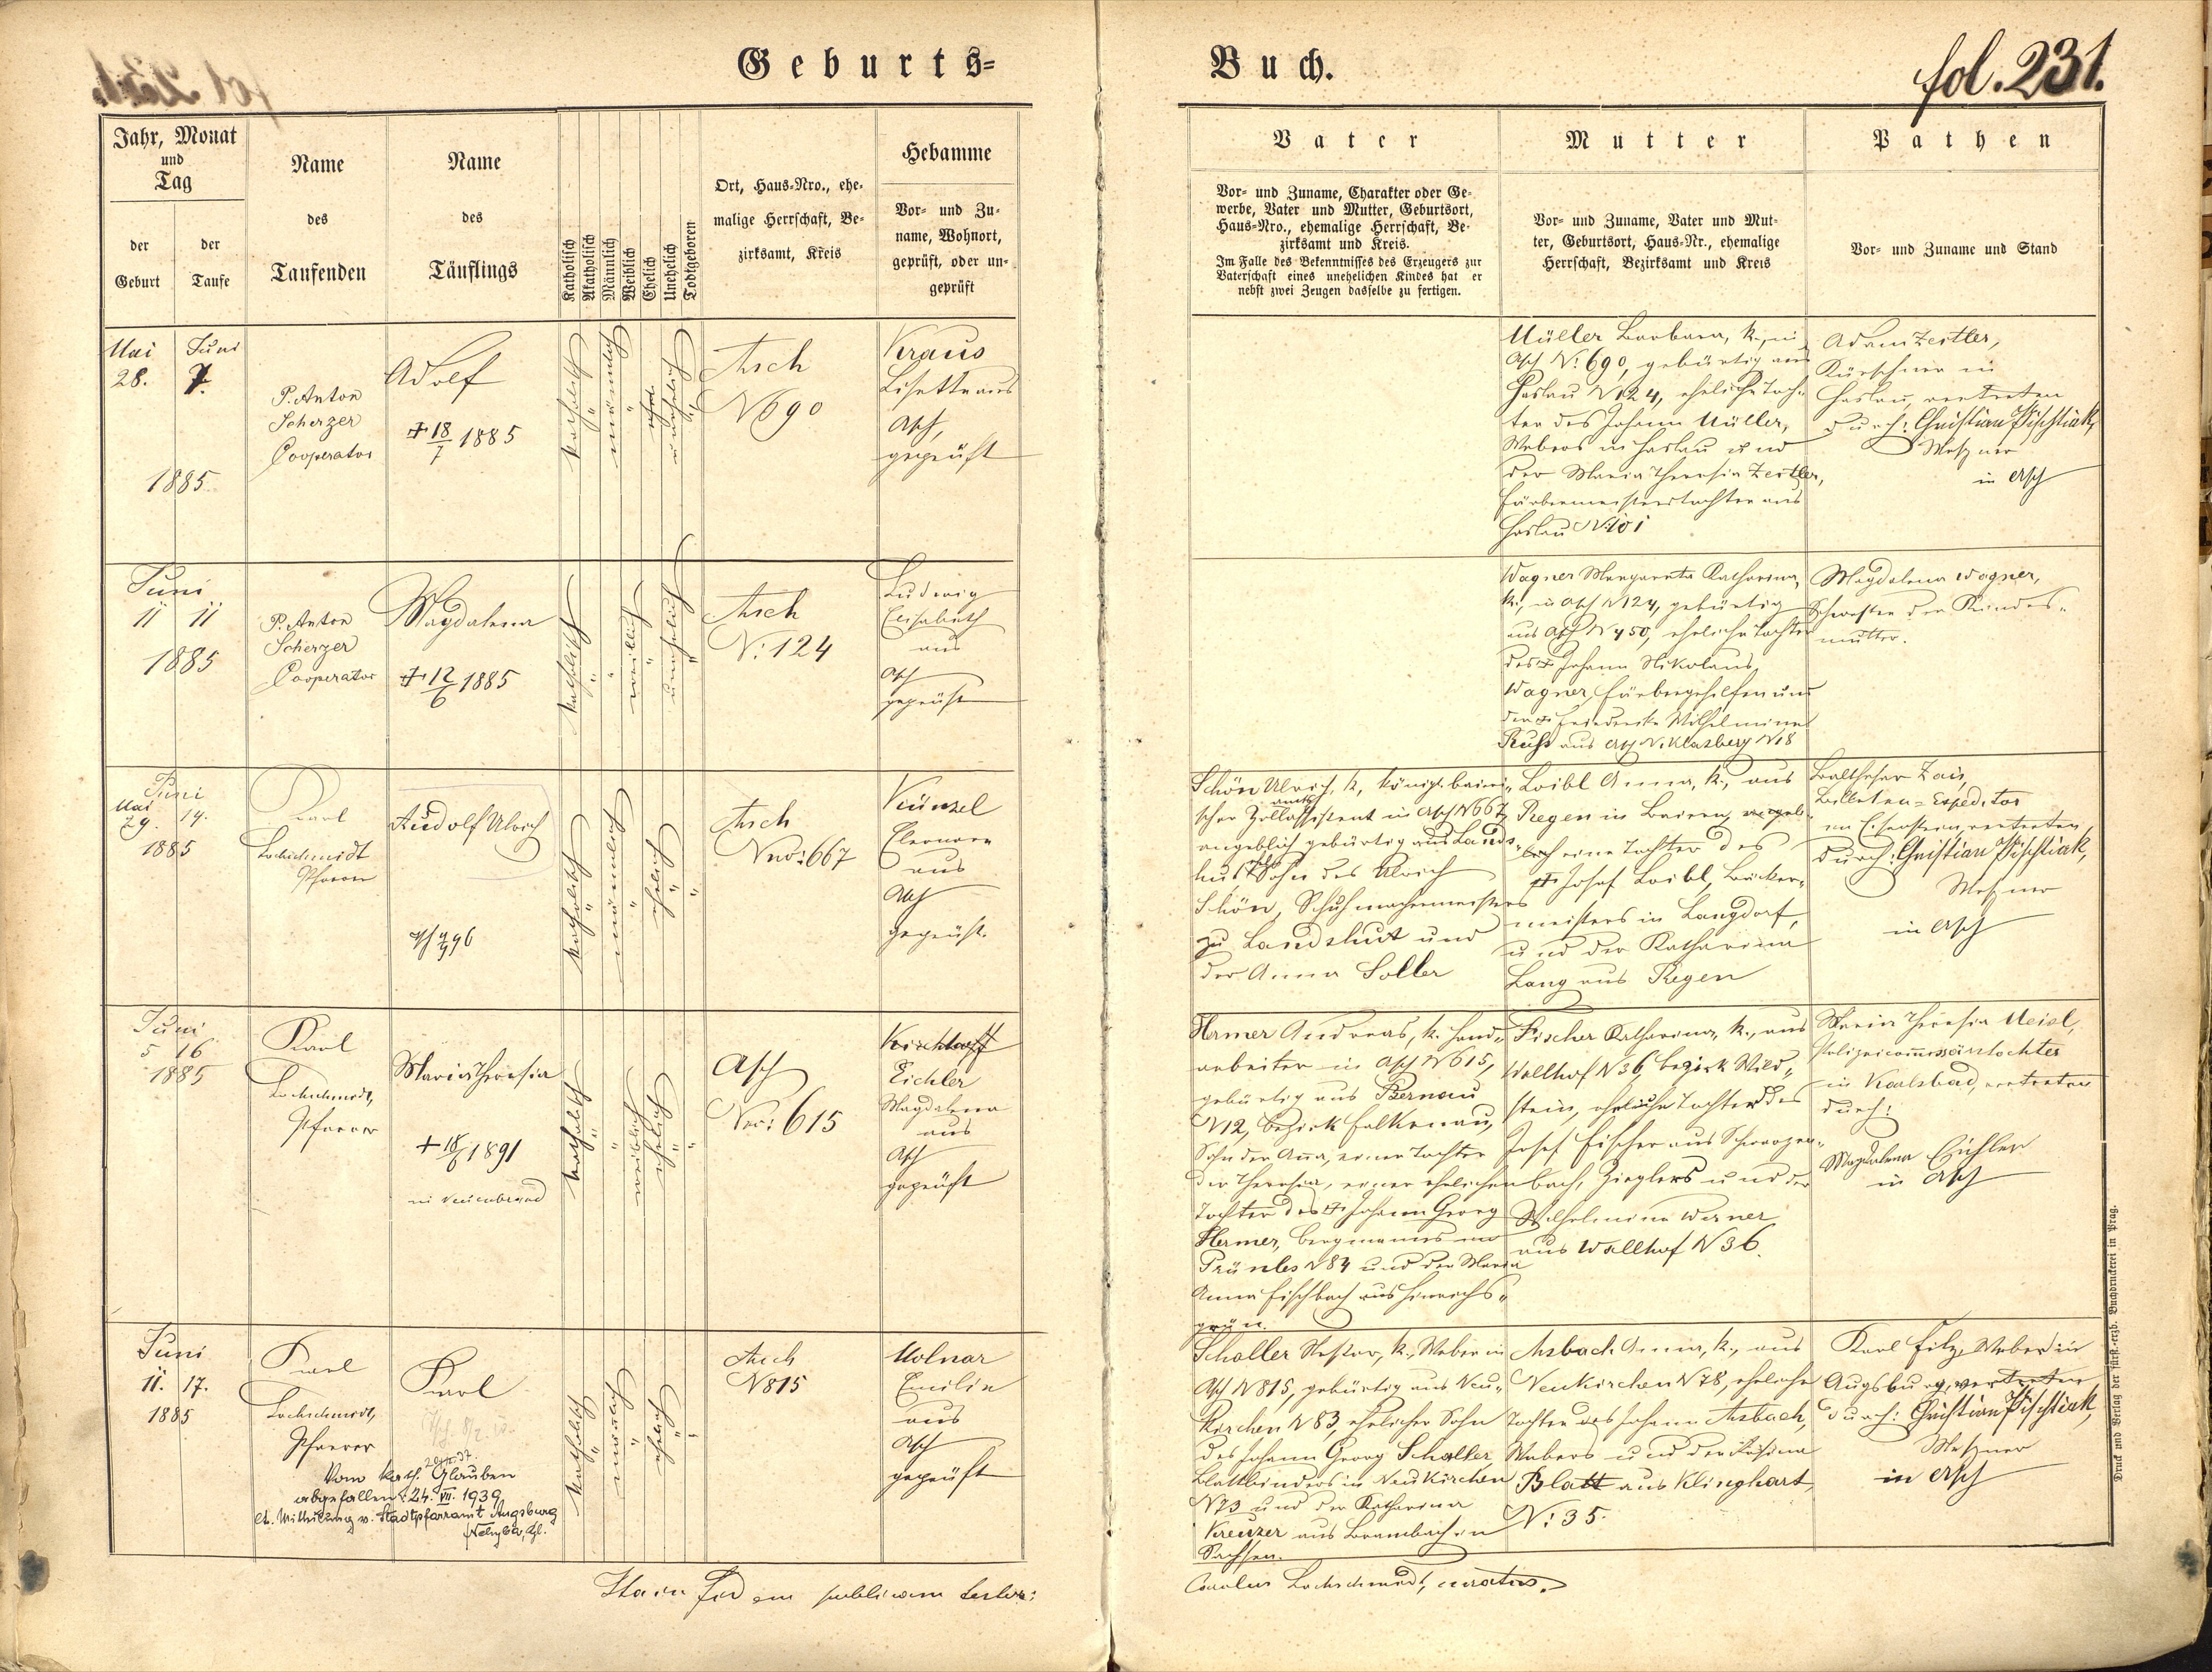 Geburts=
Buch.
fol. 231.
Jahr, Monat
und
Tag
der
Geburt
der
Taufe
Name
des
Taufenden
Name
des
Täuflings
Katholisch
Akatholisch
Männlich
Weiblich
Ehelich
Unehelich
Todtgeboren
Ort, Haus=Nro., ehe=
malige Herrschaft, Be=
zirksamt, Kreis
Hebamme
Vor= und Zu=
name, Wohnort,
geprüft, oder un=
geprüft
Vater
Vor= und Zuname, Charakter oder Ge=
werbe, Vater und Mutter, Geburtsort,
Haus=Nro., ehemalige Herrschaft, Be=
zirksamt und Kreis.
Im Falle des Bekenntnisses des Erzeugers zur
Vaterschaft eines unehelichen Kindes hat er
nebst zwei Zeugen dasselbe zu fertigen.
Mutter
Vor= und Zuname, Vater und Mut=
ter, Geburtsort, Haus=Nr., ehemalige
Herrschaft, Bezirksamt und Kreis
Pathen
Vor= und Zuname und Stand
Mai
28.
Juni
7.
1885
P. Anton
Scherzer
Cooperator
Adolf
+ 18/7 1885
katholisch
männlich
unehelich
Asch
N 690
Kraus
Lisette aus
Asch,
geprüft
Müller Barbara, k., in
Asch N: 690, gebürtig aus
Haslau N 124, eheliche Toch=
ter des Johann Müller,
Webers in Haslau und
der Maria Theresia Zeitler,
Färbermeisterstochter aus
Haslau N: 101
Adam Zeitler,
Kürschner in
Haslau, vertreten
durch: Christian Pischtiak,
Meßner
in Asch
Juni
11 11
1885
P. Anton
Scherzer
Cooperator
Magdalena
+ 12/6 1885
katholisch
weiblich
unehelich
Asch
N: 124
Ludwig
Elisabeth
aus
Asch
geprüft
Wagner Margareta Katharina,
k., in Asch N 124, gebürtig
aus Asch N 450, eheliche Tochter
des + Johann Nikolaus
Wagner, Färbergehilfen und
der + Friederike Wilhelmine
Ruß aus Asch Niklasberg N 18
Magdalena Wagner,
Schwester der Kindes=
mutter.
Juni
Mai
29. 14.
1885
Karl
Lochschmidt
Pfarrer
Rudolf Ulrich
katholisch
männlich
ehelich
Asch
Nro: 667
Künzel
Eleonora
aus
Asch
geprüft.
Schön Ulrich, k., königl. bairi=
scher Zollamtsassistent in Asch N 667,
angeblich gebürtig aus Lands=
hut, Sohn des Ulrich
Schön, Schuhmachermeisters
zu Landshut und
der Anna Soller
Loibl Anna, k., aus
Regen in Baiern, angeb=
lich eine Tochter des
+ Josef Loibl, Bäcker=
meisters in Langdorf,
und der Katharina
Lang aus Regen
Balthasar Zais,
Billeten=Expeditor
in Eisenstein, vertreten
durch: Christian Pischtiak,
Meßner
in Asch
Juni
5 16
1885
Karl
Lochschmidt,
Pfarrer
Maria Theresia
+ 18/6 1891
in Neuenbrand
katholisch
weiblich
ehelich
Asch
Nro: 615
Kirchhoff
Eichler
Magdalena
aus
Asch
geprüft
Hermer Andreas, k., Hand=
arbeiter in Asch N 615,
gebürtig aus Bernau
N 12, Bezirk Falkenau,
Sohn der Anna, einer Tochter
der Theresia, einer ehelichen
Tochter des + Johann Georg
Hermer, Bergmannes in
Prünles N 84 und der Maria
Anna Fischbach aus Heinrichs=
grün.
Fischer Katharina, k., aus
Wallhof N 36, Bezirk Wild=
stein, eheliche Tochter des
Josef Fischer aus Schwarzen=
bach, Zieglers und der
Wilhelmine Werner
aus Wallhof N 36.
Maria Theresia Meisl,
Polizeicommissärstochter
in Karlsbad, vertreten
durch:
Magdalena Eichler
in Asch
Juni
11. 17.
1885
Karl
Lochschmidt,
Pfarrer
Karl
Vom kath. Glauben
abgefallen: 24. VII. 1939
lt. Mitteilung v. Stadtpfarramt Augsburg
katholisch
männlich
ehelich
Asch
N 815
Molnar
Emilie
aus
Asch
geprüft
Schaller Nestor, k., Weber in
Asch N 815, gebürtig aus Neu=
kirchen N 83, ehelicher Sohn
des Johann Georg Schaller,
Blattbinders in Neukirchen
N 73 und der Katharina
Kreuzer aus Brambach in
Sachsen.
Asbach Anna, k., aus
Neukirchen N 78, eheliche
Tochter des Johann Asbach,
Webers und der Rosina
Blatt aus Klinghart
N: 35.
Karl Filz, Weber in
Augsburg, vertreten
durch: Christian Pischtiak,
Meßner
in Asch
Ita in fidem publicam testor:
Carolus Lochschmidt, curatus.
Druck und Verlag der fürst.=erzb. Buchdruckerei in Prag.